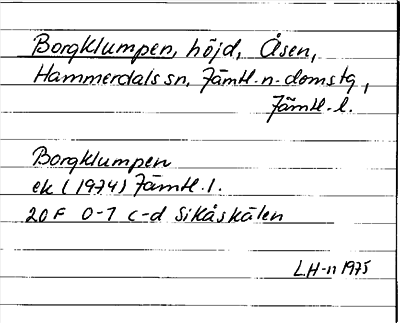 Borgklumpen, höjd, Åsen,
Hammerdals sn, Jämtl. n. domstg,
Jämtl. l.
Borgklumpen
ek (1974) Jämtl. l.
20 F 0-1 c-d Sikåskälen
LH-n 1975